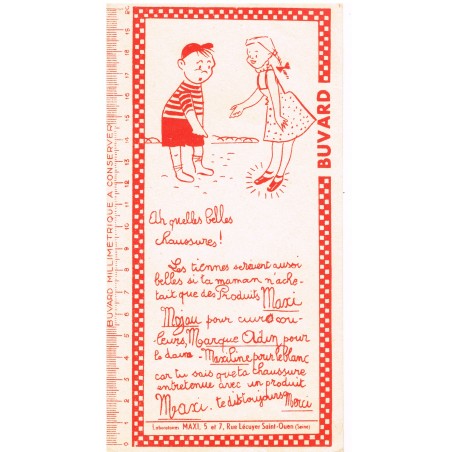 BUVARD
BUVARD MILLIMETRIQUE A CONSERVER
Ah quelles belles
chaussures!
Les tiennes seraient aussi
belles si ta maman n'ache-
tait que des Produits Maxi
Mojau pour cuir cou-
leurs, Marque Aden pour
le daim - Maxiline pour le blanc
car tu sais que ta chaussure
entretenue avec un produit
Maxi. te dis toujours Merci
Laboratoires MAXI. 5 et 7, Rue Lécuyer Saint-Ouen (Seine)